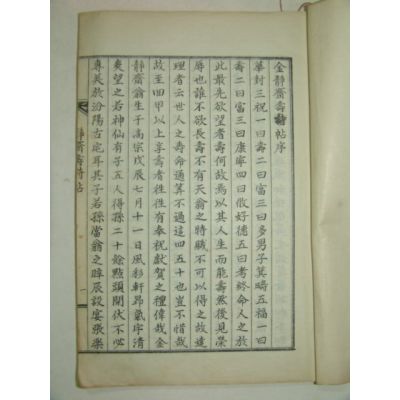 金靜齋壽詩帖序
華封三祝一曰壽二曰富三曰多男子箕疇五福一曰
壽二曰富三曰康寧四曰攸好德五曰考終命人之於
此最先不欲望者壽何故焉以其人生而能壽然後見榮
辱也誰不欲長壽不有天翁之特賜不可以得之故達
理者云世人之壽命通算不過這四五十也豈不惜哉
故至四甲以上享壽者徃徃有奉祝獻賀之禮偉哉金
靜齋翁生于高宗戊辰七月十一日風彩軒昻氣宇清
爽望之若神仙有子五人得孫二十餘點頭開伏不必
專美於汾陽古宅耳其子若孫當翁之晬辰設宴張樂
靜齋壽詩帖
一